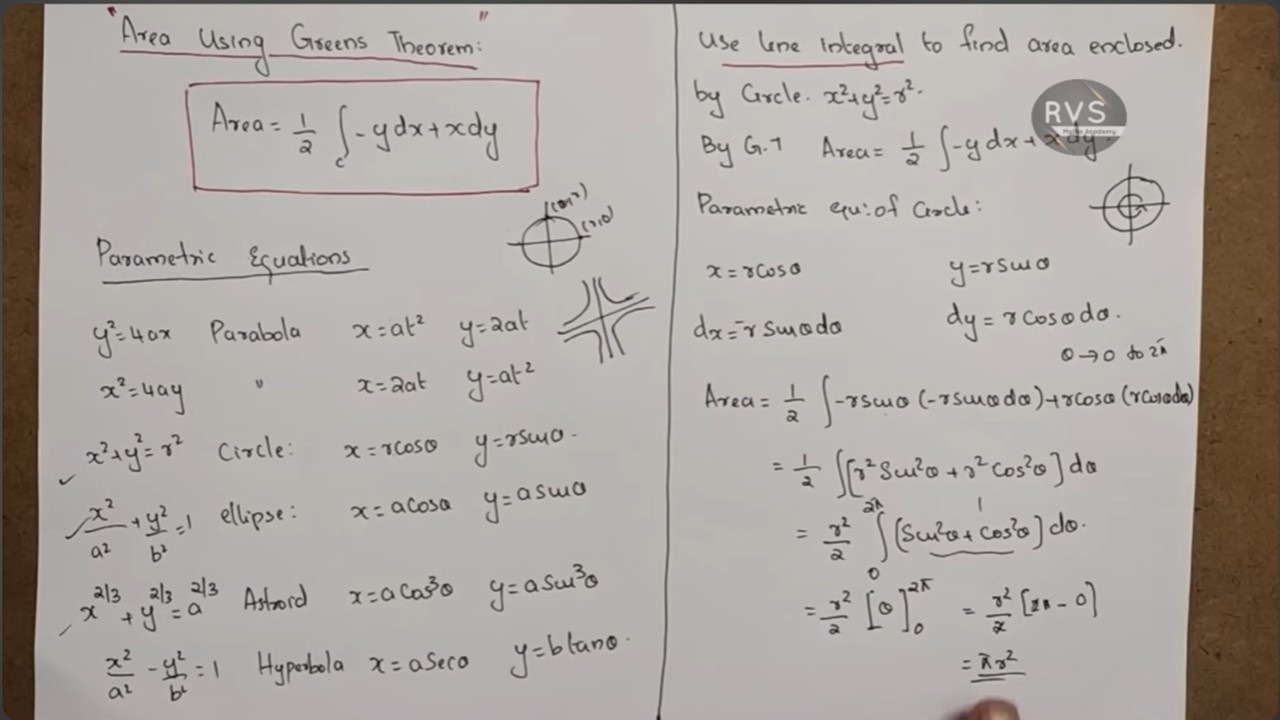 "Area Using Greens Theorem:"
Area = 1/2 ∫c -ydx+xdy
(0,r)
(r,0)
Parametric Equations
y²=4ax Parabola x=at² y=2at
x²=4ay " x=2at y=at²
x²+y²=r² Circle: x=rcosθ y=rsinθ.
x²/a²+y²/b²=1 ellipse: x=acosθ y=asinθ
x^2/3+y^2/3=a^2/3 Astroid x=aCos³θ y=aSin³θ
x²/a²-y²/b²=1 Hyperbola x=aSecθ y=btanθ.
Use line integral to find area enclosed.
by Circle. x²+y²=r².
RVS
Maths Academy
By G.T Area= 1/2 ∫-ydx+xdy.
Parametric equ: of Circle:
x=rcosθ y=rsinθ
dx=-rSinθdθ dy=rCosθdθ.
θ→0 to 2π
Area= 1/2 ∫-rsinθ(-rsinθdθ)+rcosθ(rcosθdθ)
= 1/2 ∫[r²Sin²θ+r²Cos²θ]dθ
= r²/2 ∫0^2π (Sin²θ+Cos²θ]dθ. 1
= r²/2 [θ]0^2π = r²/2 [2π-0]
= πr²